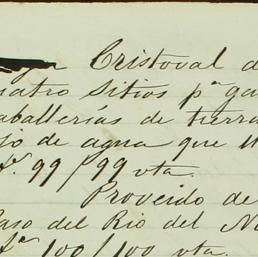 Cristoval d
uatro sitios pª ga
aballerías de tierra
jo de agua que ll
fs. 99/99 vta.
Proveido de
Paso del Rio del N
fs. 100/100 vta.